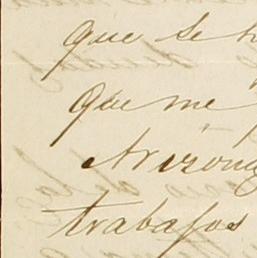 que se
que me
Arizona
trabajos